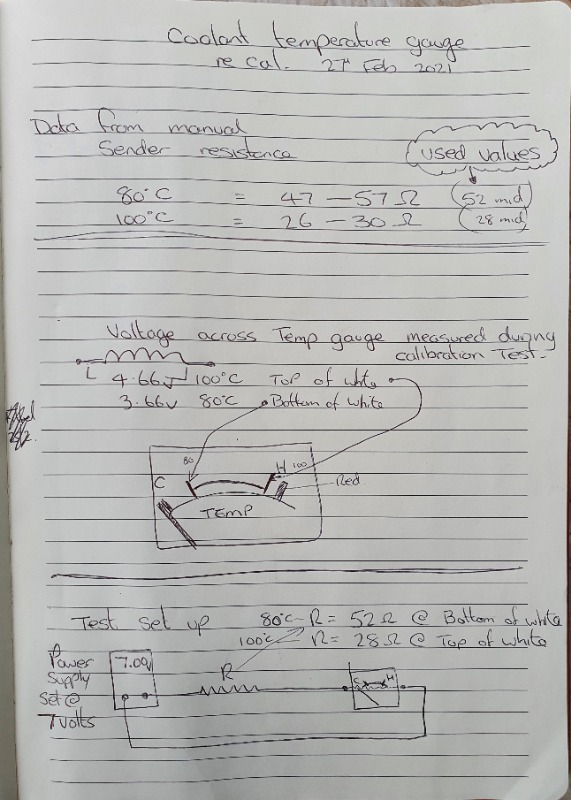 Coolant temperature gauge
re cal. 27th Feb 2021
Data from manual
Sender resistence
used values
80°C = 47 – 57 Ω (52 mid)
100°C = 26 – 30 Ω (28 mid)
Voltage across Temp gauge measured during
calibration Test.
4.66v 100°C Top of white
3.66v 80°C Bottom of white
80 H 100
C Red
TEMP
Test set up 80°C – R = 52 Ω @ Bottom of white
100°C R = 28 Ω @ Top of white
Power 7.00v R
Supply
Set @ H
7 volts